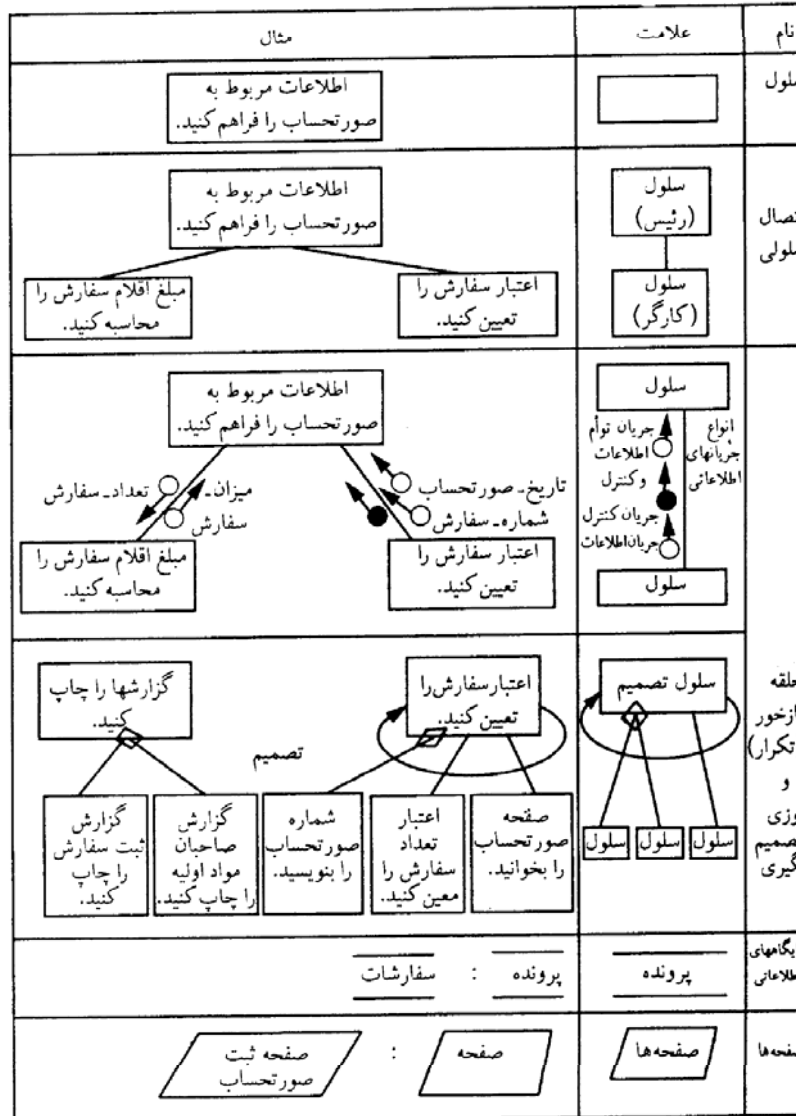 نام
علامت
مثال
سلول
اطلاعات مربوط به
صورتحساب را فراهم کنید.
سلولی
سلول
(رئیس)
سلول
(کارگر)
اطلاعات مربوط به
صورتحساب را فراهم کنید.
اعتبار سفارش را
تعیین کنید.
مبلغ اقلام سفارش را
محاسبه کنید.
سلول
انواع
جریانهای
اطلاعاتی
جریان توأم
اطلاعات
و کنترل
جریان کنترل
جریان اطلاعات
سلول
اطلاعات مربوط به
صورتحساب را فراهم کنید.
تاریخ-صورتحساب
شماره-سفارش
میزان-
سفارش
تعداد-سفارش
اعتبار سفارش را
تعیین کنید.
مبلغ اقلام سفارش را
محاسبه کنید.
(تکرار)
و
تصمیم
گیری
سلول تصمیم
سلول
سلول
سلول
اعتبار سفارش را
تعیین کنید.
تصمیم
گزارشها را چاپ
کنید.
صفحه
صورتحساب
را بخوانید.
اعتبار
تعداد
سفارش را
معین کنید.
شماره
صورتحساب
را بنویسید.
گزارش
صاحبان
مواد اولیه
را چاپ کنید.
گزارش
ثبت سفارش
را چاپ
کنید.
پرونده
پرونده : سفارشات
صفحه‌ها
صفحه‌ها
صفحه :
صفحه ثبت
صورتحساب